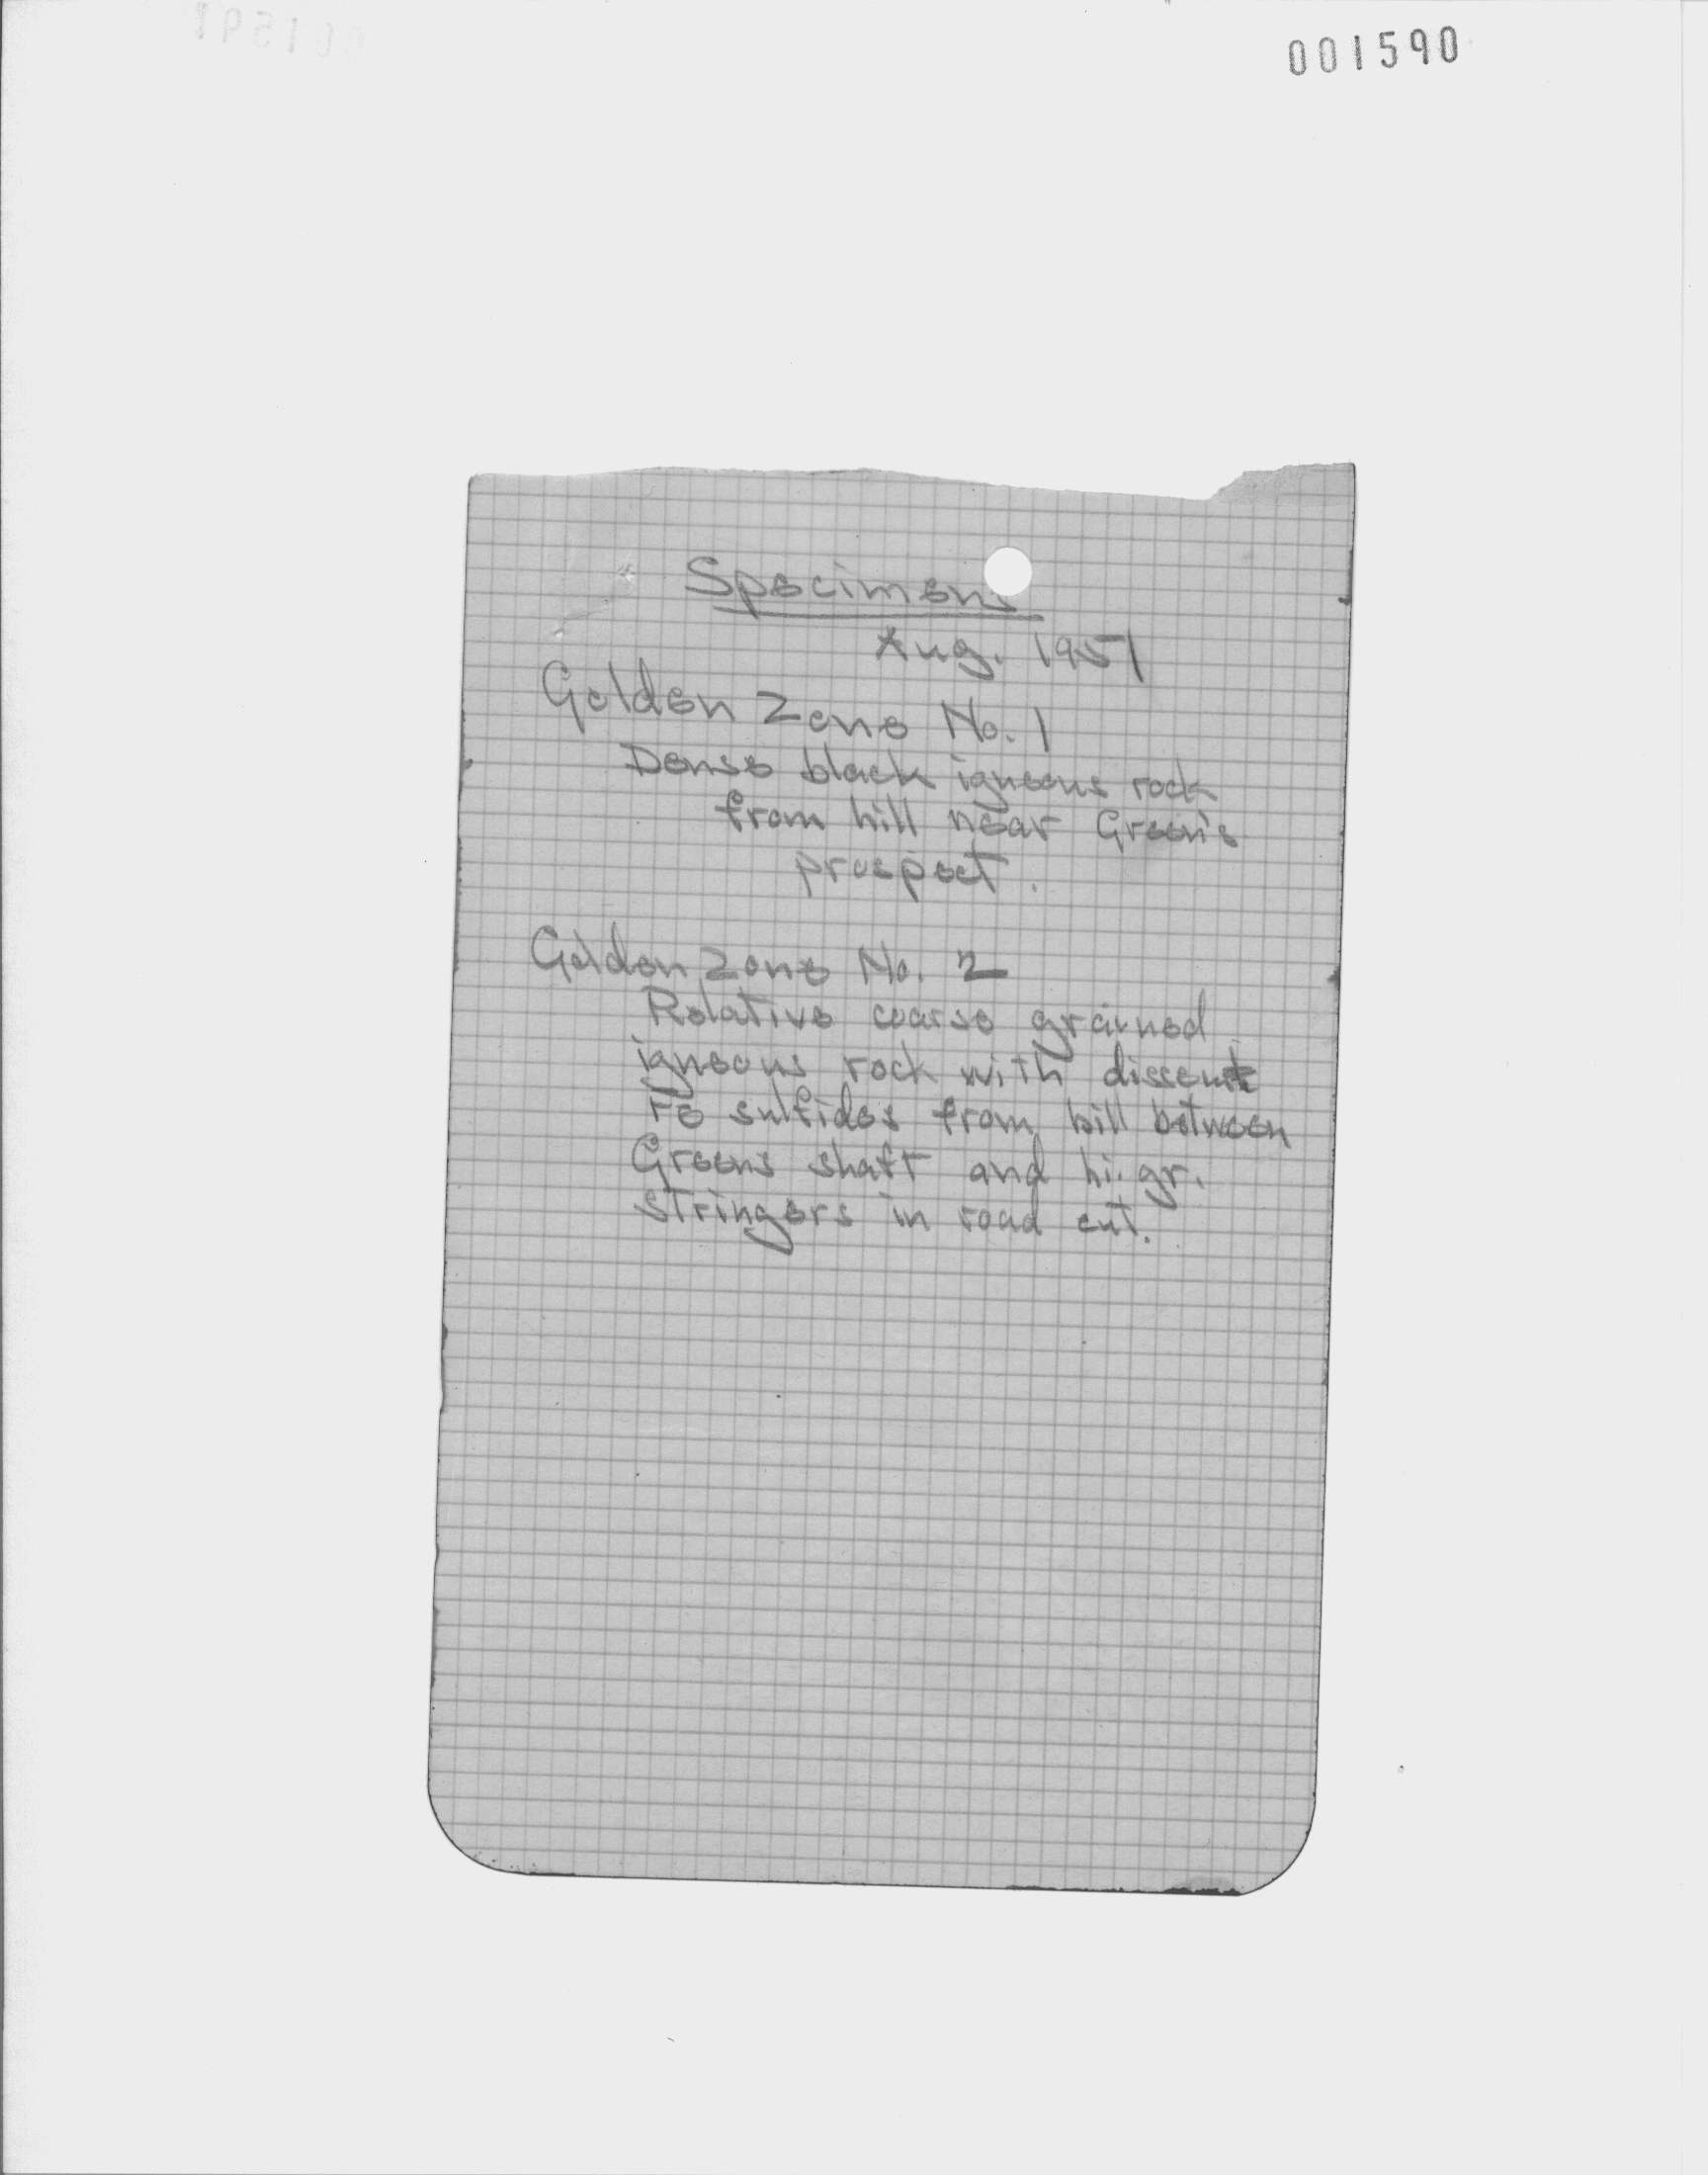 001590
Specimens
Aug. 1951
Golden Zone No. 1
Dense black igneous rock
from hill near Green's
prospect.
Golden Zone No. 2
Relative coarse grained
igneous rock with
Fe sulfides from hill between
Greens shaft and hi. gr.
stringers in road cut.